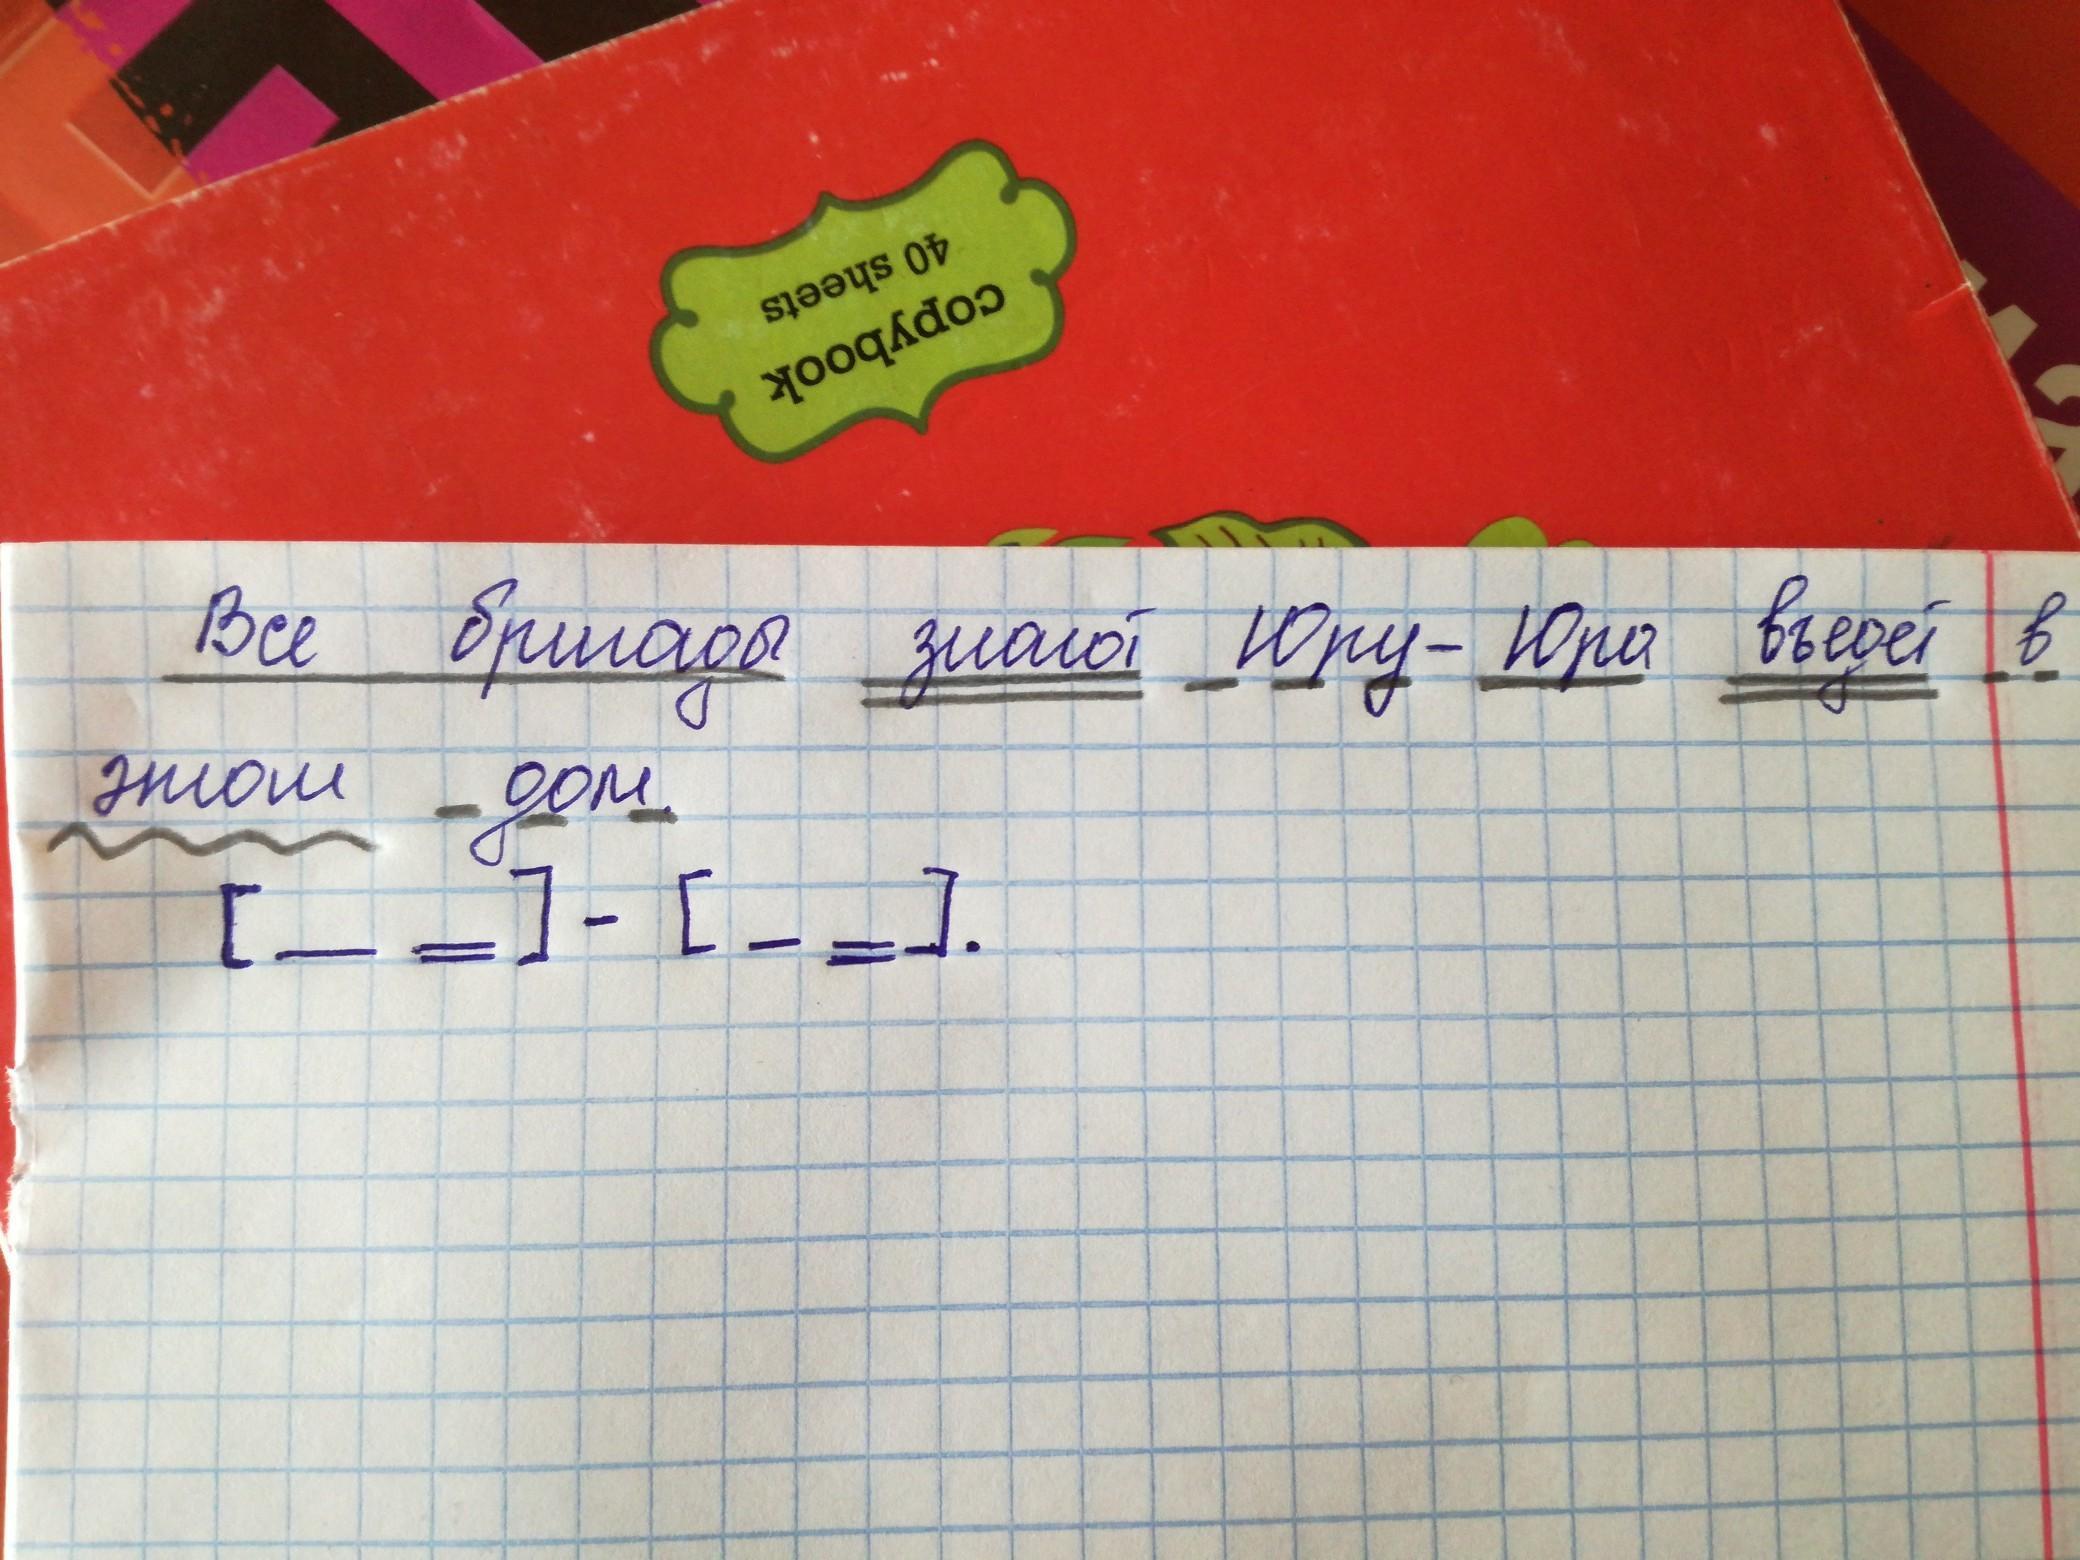 copybook
40 sheets
Все бригады знают Юру - Юра въедет в
этот дом.
[ _ = ] - [ _ = ].